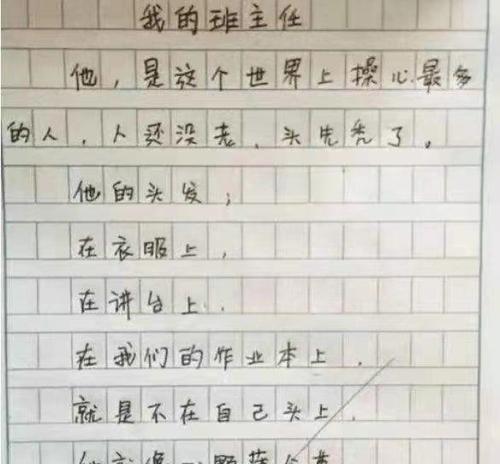 我的班主任
他，是这个世界上操心最多
的人，人还没老，头先秃了。
他的头发，
在衣服上，
在讲台上，
在我们的作业本上，
就是不在自己头上。
他就像一颗蒲公英